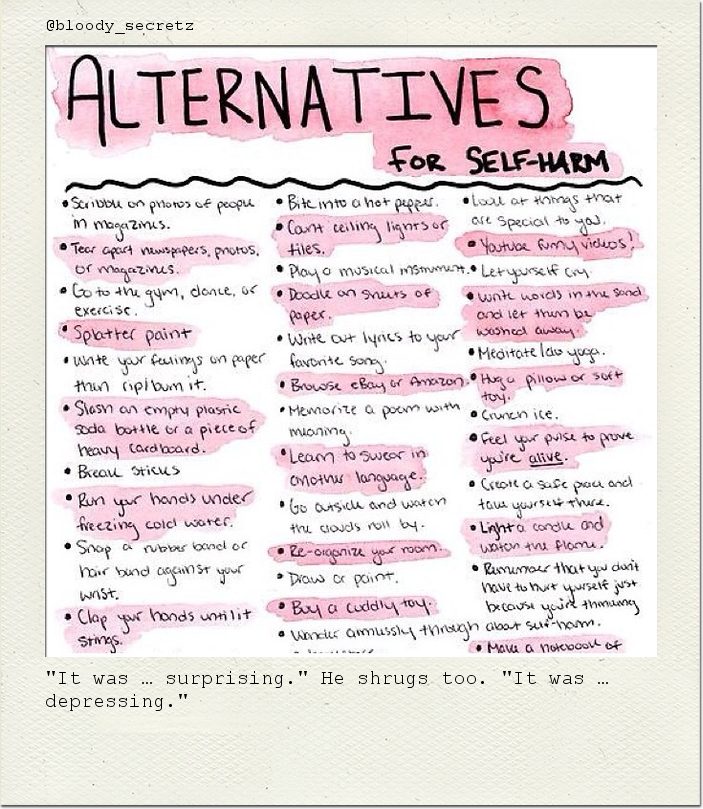 @bloody_secretz
ALTERNATIVES
FOR SELF-HARM
• Scribble on photos of people
in magazines.
• Tear apart newspapers, photos,
or magazines.
• Go to the gym, dance, or
exercise.
• Splatter paint
• Write your feelings on paper
then rip/burn it.
• Slash an empty plastic
soda bottle or a piece of
heavy cardboard.
• Break sticks
• Run your hands under
freezing cold water.
• Snap a rubber band or
hair band against your
wrist.
• Clap your hands until it
stings.
• Bite into a hot pepper.
• Count ceiling lights or
tiles.
• Play a musical instrument.
• Doodle on sheets of
paper.
• Write out lyrics to your
favorite song.
• Browse eBay or Amazon.
• Memorize a poem with
meaning.
• Learn to swear in
another language.
• Go outside and watch
the clouds roll by.
• Re-organize your room.
• Draw or paint.
• Buy a cuddly toy.
• Wander aimlessly through
• Look at things that
are special to you.
• Youtube funny videos!
• Let yourself cry.
• Write words in the sand
and let them be
washed away.
• Meditate/do yoga.
• Hug a pillow or soft
toy.
• Crunch ice.
• Feel your pulse to prove
you're alive.
• Create a safe place and
take yourself there.
• Light a candle and
watch the flame.
• Remember that you don't
have to hurt yourself just
because you're thinking
about self-harm.
• Make a notebook of
"It was … surprising." He shrugs too. "It was …
depressing."